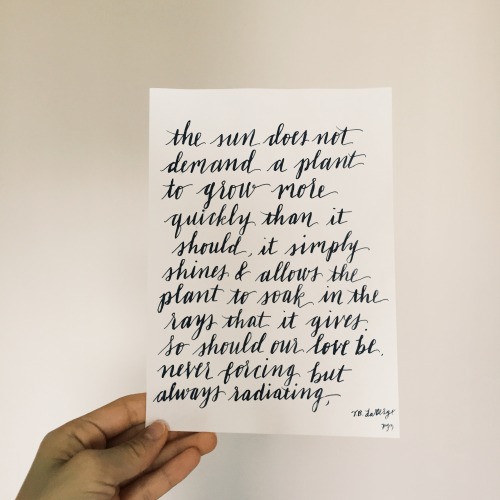 the sun does not
demand a plant
to grow more
quickly than it
should, it simply
shines & allows the
plant to soak in the
rays that it gives.
so should our love be.
never forcing but
always radiating,